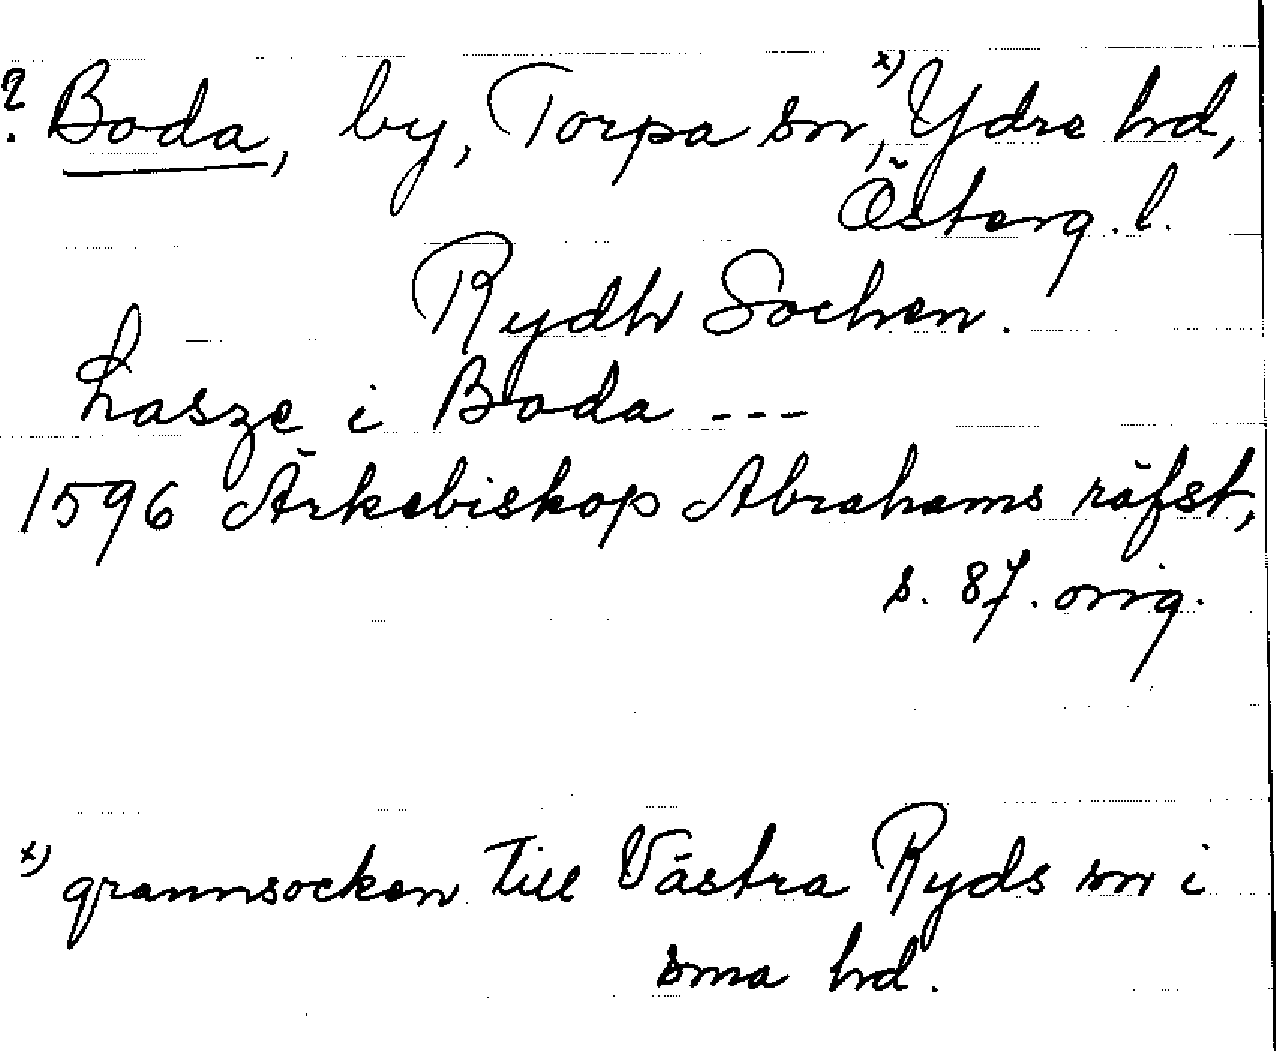 ? Boda, by, Torpa sn,ˣ⁾ Ydre hd,
Österg. l.
Rydh Sochen.
Lasze i Boda ---
1596 Ärkebiskop Abrahams räfst,
s. 87. orig.
ˣ⁾ grannsocken till Västra Ryds sn i
sma hd.